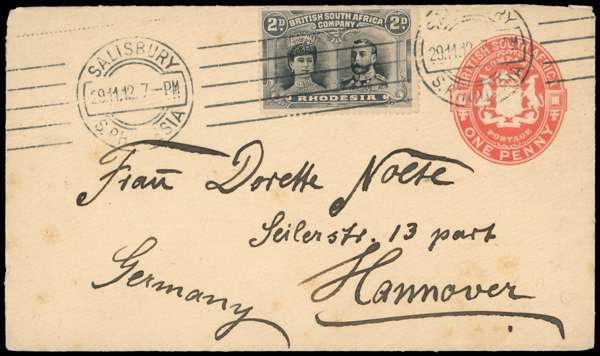 SALISBURY
29.11.12.7-PM
S.RHODESIA
2D BRITISH SOUTH AFRICA COMPANY 2D
RHODESIA
SALISBURY
29.11.12
BRITISH SOUTH AFRICA
COMPANY
POSTAGE
ONE PENNY
Frau Dorette Nolte
Seilerstr. 13 part
Hannover
Germany